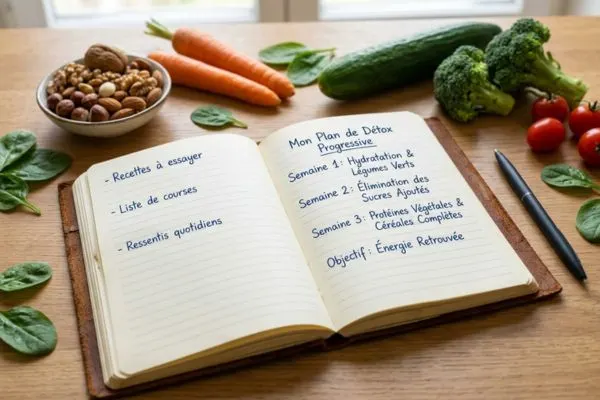 - Recettes à essayer
- Liste de courses
- Ressentis quotidiens
Mon Plan de Détox
Progressive
Semaine 1: Hydratation &
Légumes Verts
Semaine 2: Élimination des
Sucres Ajoutés
Semaine 3: Protéines Végétales &
Céréales Complètes
Objectif: Énergie Retrouvée